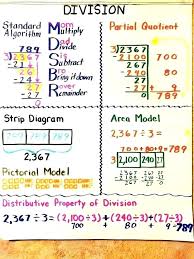 DIVISION
Standard
Algorithm
Mom
Multiply
Dad
Divide
Sis
Subtract
Bro
Bring it down
Rover
Remainder
789
3)2367
-21
26
-24
27
-27
0
Partial Quotient
3)2367
-2100 700
267
-240 80
27
-27 9
0
700+80+9=789
Strip Diagram
789 789 789
2,367
Pictorial Model
Area Model
2,367÷3=
700+80+9=789
3 2,100 240 27
Distributive Property of Division
2,367÷3=(2,100÷3)+(240÷3)+(27÷3)
700 + 80 + 9 =789